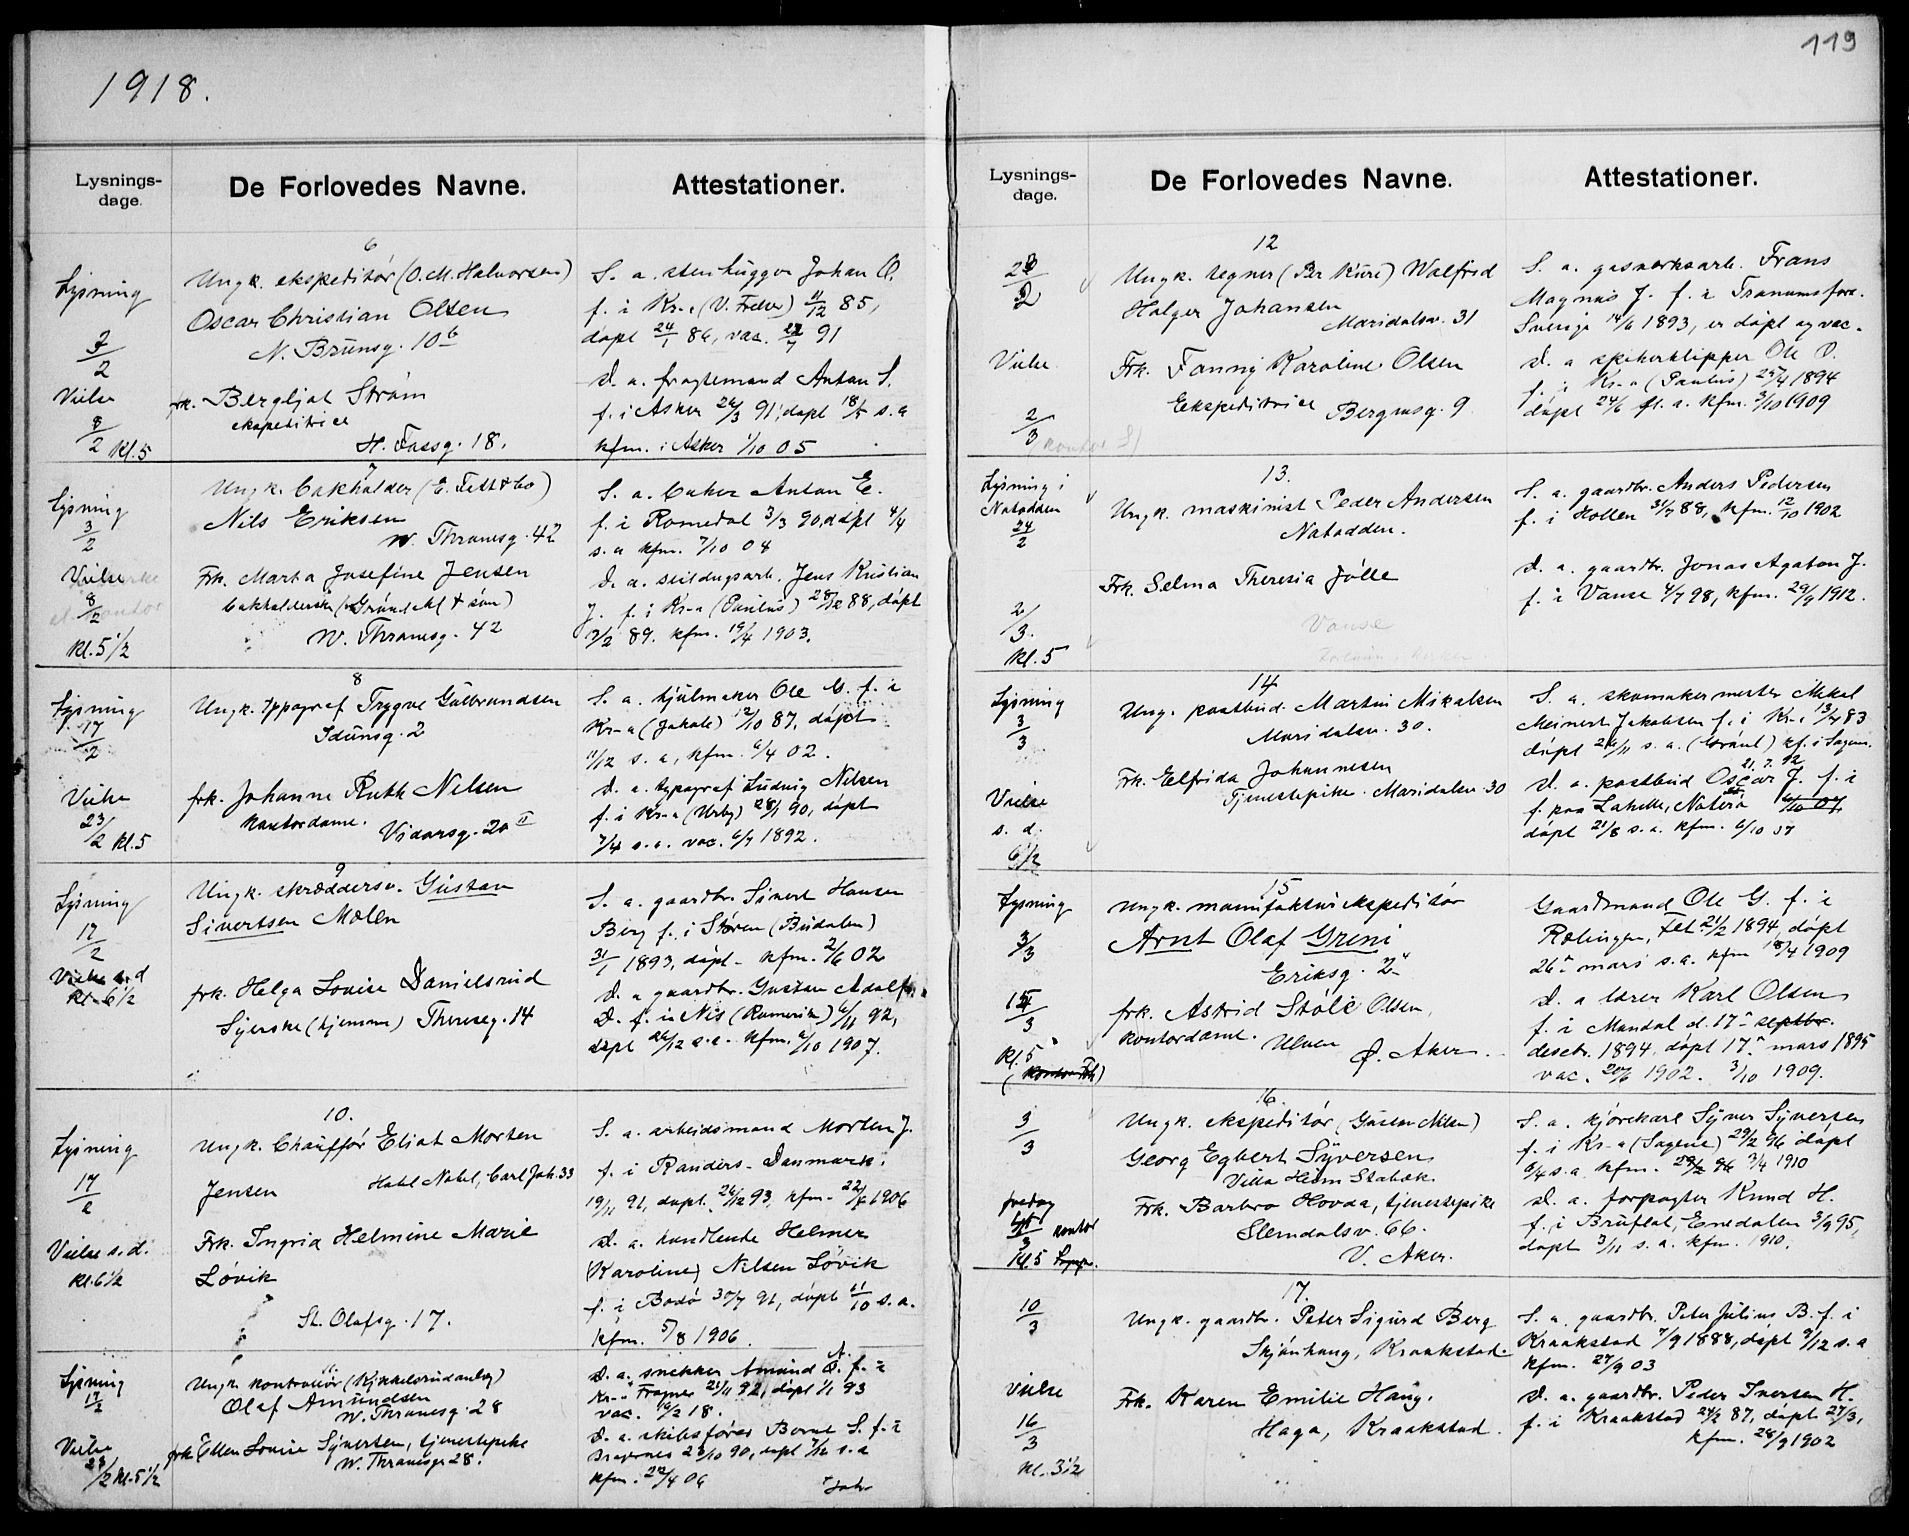 119
1918.
Lysnings-
dage.
De Forlovedes Navne.
Attestationer.
6
Lysning
3/2
Vielse
8/2 kl. 5
Ungk. ekspeditör (O. M. Halvorsen)
Oscar Christian Olsen
N. Brunsg. 10 b
frk. Bergljot Ström
ekspeditrice
H. Fossg. 18.
S. a. stenhugger Johan O.
f. i Kr.a (V. Frelse) 11/12 85,
döpt 24/1 86, vac. 91
D. a. fragtemand Anton S.
f. i Asker 26/3 91, döpt 18/5 s. a
kfm. i Asker 1/10 05
7
Lysning
3/2
Vielse
8/2
kl. 5 1/2
Ungk. bokholder (E. Fett & Co)
Nils Eriksen
W. Thranesg. 42
Frk. Marta Josefine Jensen
bokholderske (Gröndahl & sön)
W. Thranesg. 42
S. a. baker Anton E.
f. i Romedal 3/3 90, döpt 4/4
s. a kfm. 7/10 04
D. a. skildugsarb. Jens Kristian
J. f. i Kr-a (Paulus) 28/12 88, döpt
3/2 89. kfm. 19/4 1903.
8
Lysning
17/2
Vielse
23/2 kl. 5
Ungk. typograf Trygve Gulbrandsen
Idunsg. 2
frk. Johanne Ruth Nilsen
Kontordame. Vidarsg. 20 II
S. a. hjulmaker Ole G. f. i
Kr-a (Jakob) 12/10 87, döpt
11/12 s. a, kfm. 6/4 02.
D. a. typograf Ludvig Nilsen
f. i Kr-a (Urbg) 28/1 90, döpt
7/4 s. a. vac. 6/7 1892.
9
Lysning
17/2
Vielse s. d
Kl. 6 1/2
Ungk. skræddersv. Gustav
Sivertsen Molen
frk. Helga Lovise Danielsrud
Syerske (hjemme) Theresesg. 14
S. a. gaardbr. Sivert Hansen
Berg f. i Stören (Budalen)
31/1 1893, döpt - kfm. 2/6 02
D. a gaardbr. Gustav Adolf
D. f. i Nes (Romerike) 6/11 92,
döpt 26/12 s. a. kfm. 6/10 1907.
10.
Lysning
17/2
Vielse s. d.
kl. 6 1/2
Ungk. Chaufför Eliot Morten
Jensen Hotel Nobel, Carl Joh. 33
Frk. Ingrid Helmine Marie
Lövik
St. Olafsg. 17.
S. a. arbeidsmand Morten J.
f. i Randers - Danmark.
19/11 91, döpt. 26/12 93, kfm. 22/4 1906
D. a. handlende Helmer
(Karoline) Nilsen Lövik
f. i Bodö 30/7 91, döpt 11/10 s. a.
kfm. 5/8 1906
11.
Lysning
17/2
Vielse
23/2 kl. 5 1/2
Ungk. kontrollör (Kykkelsrudanlæg)
Olaf Amundsen
W. Thranesg. 28
frk. Ellen Lovise Syversen, tjenestepike
W. Thranesg. 28.
D. a. snekker Amund O. f. i
Kr-a Frogner 21/11 92, döpt 1/1 93
vac. 16/2 18.
D. a. skibsförer Bernt S. f. i
Dragsnes 23/10 90, döpt 7/12 s. a
kfm. 22/4 06
Lysnings-
dage.
De Forlovedes Navne.
Attestationer.
12
Vielse
2/3
Ungk. tegner (Per Kure) Walfrid
Holger Johansen
Maridalsv. 31
Frk. Fanny Karoline Olsen
Ekspeditrice Bergensg. 9
S. a. gasverksarb. Frans
Magnus J. f. i Tranumsfors.
Sverige 14/6 1893, er döpt og vac.
D. a spikerklipper Ole O.
f. i Kr-a (Paulus) 25/4 1894
döpt 24/6 s. a. kfm. 3/10 1909
13.
Lysning i
Notodden
24/2
2/3.
kl. 5
Ungk. maskinist Peder Andersen
Notodden.
Frk. Selma Theresia Jölle
Vanse
S. a. gaardbr. Anders Pedersen
f. i Hollen 31/7 88, kfm. 12/10 1902
D. a. gaardbr. Jonas Agaton J.
f. i Vanse 4/7 98, kfm. 29/9 1912.
14
Lysning
3/3
Vielse
s. d.
6 1/2
Ung. postbud Martin Mikalsen
Maridalsv. 30.
Frk. Elfrida Johannesen
Tjenestepike. Maridalsv. 30
S. a. skomakermester Mikal
Meinert Jakobsen f. i Kr-a 13/7 83
döpt 26/11 s. a. (Grönl) kf. i Sagene.
21. 7. 92
D. a. postbud Oscar J. f. i
f. paa Lahelle, Nöterö
döpt 21/8 s. a. kfm. 6/10 07
15
Lysning
3/3
15/3
Kl. 5
Ungk. manufakturekspeditör
Arnt Olaf Greni
Eriksg. 2 II
frk. Astrid Stöle Olsen,
kontordame. Ulven
Ö. Aker.
Gaardmand Ole G. f. i
Rælingen, Fet 21/2 1894, döpt
26 mars s. a. kfm 18/4 1909
D. a lærer Karl Olsen
f. i Mandal d. 17 septbr.
desebr. 1894, döpt 17 mars 1895
vac. 20/6 1902. 3/10 1909.
16.
3/3
fredag
kontor
kl. 5
Ungk. ekspeditör (Gustav Nilsen)
Georg Egbert Syversen
Villa Heim Stabæk
Frk. Barbro Hovda, tjenestepike
Slemdalsv. 66.
V. Aker.
S. a. kjörekarl Syver Syversen
f. i Kr-a (Sagene) 29/2 96 döpt
6/4 s. a. kfm. 3/4 1910
D. a. forpagter Knud H.
f. i Bruflat, Etnedalen 3/9 95,
döpt 3/11 s. a. kfm. 1910.
17.
10/3
Vielse
16/3
kl. 3 1/2
Ungk. gaardbr. Peter Sigurd Berg
Skjönhaug, Kraakstad.
Frk. Karen Emilie Haug.
Haga, Kraakstad.
S. a. gaardbr. Peter Julius B. f. i
Kraakstad 7/9 1888, döpt 9/12 s. a
kfm. 27/9 03
D. a. gaardbr. Peder Iversen H.
f. i Kraakstad 24/2 87, döpt 27/3,
kfm. 28/9 1902